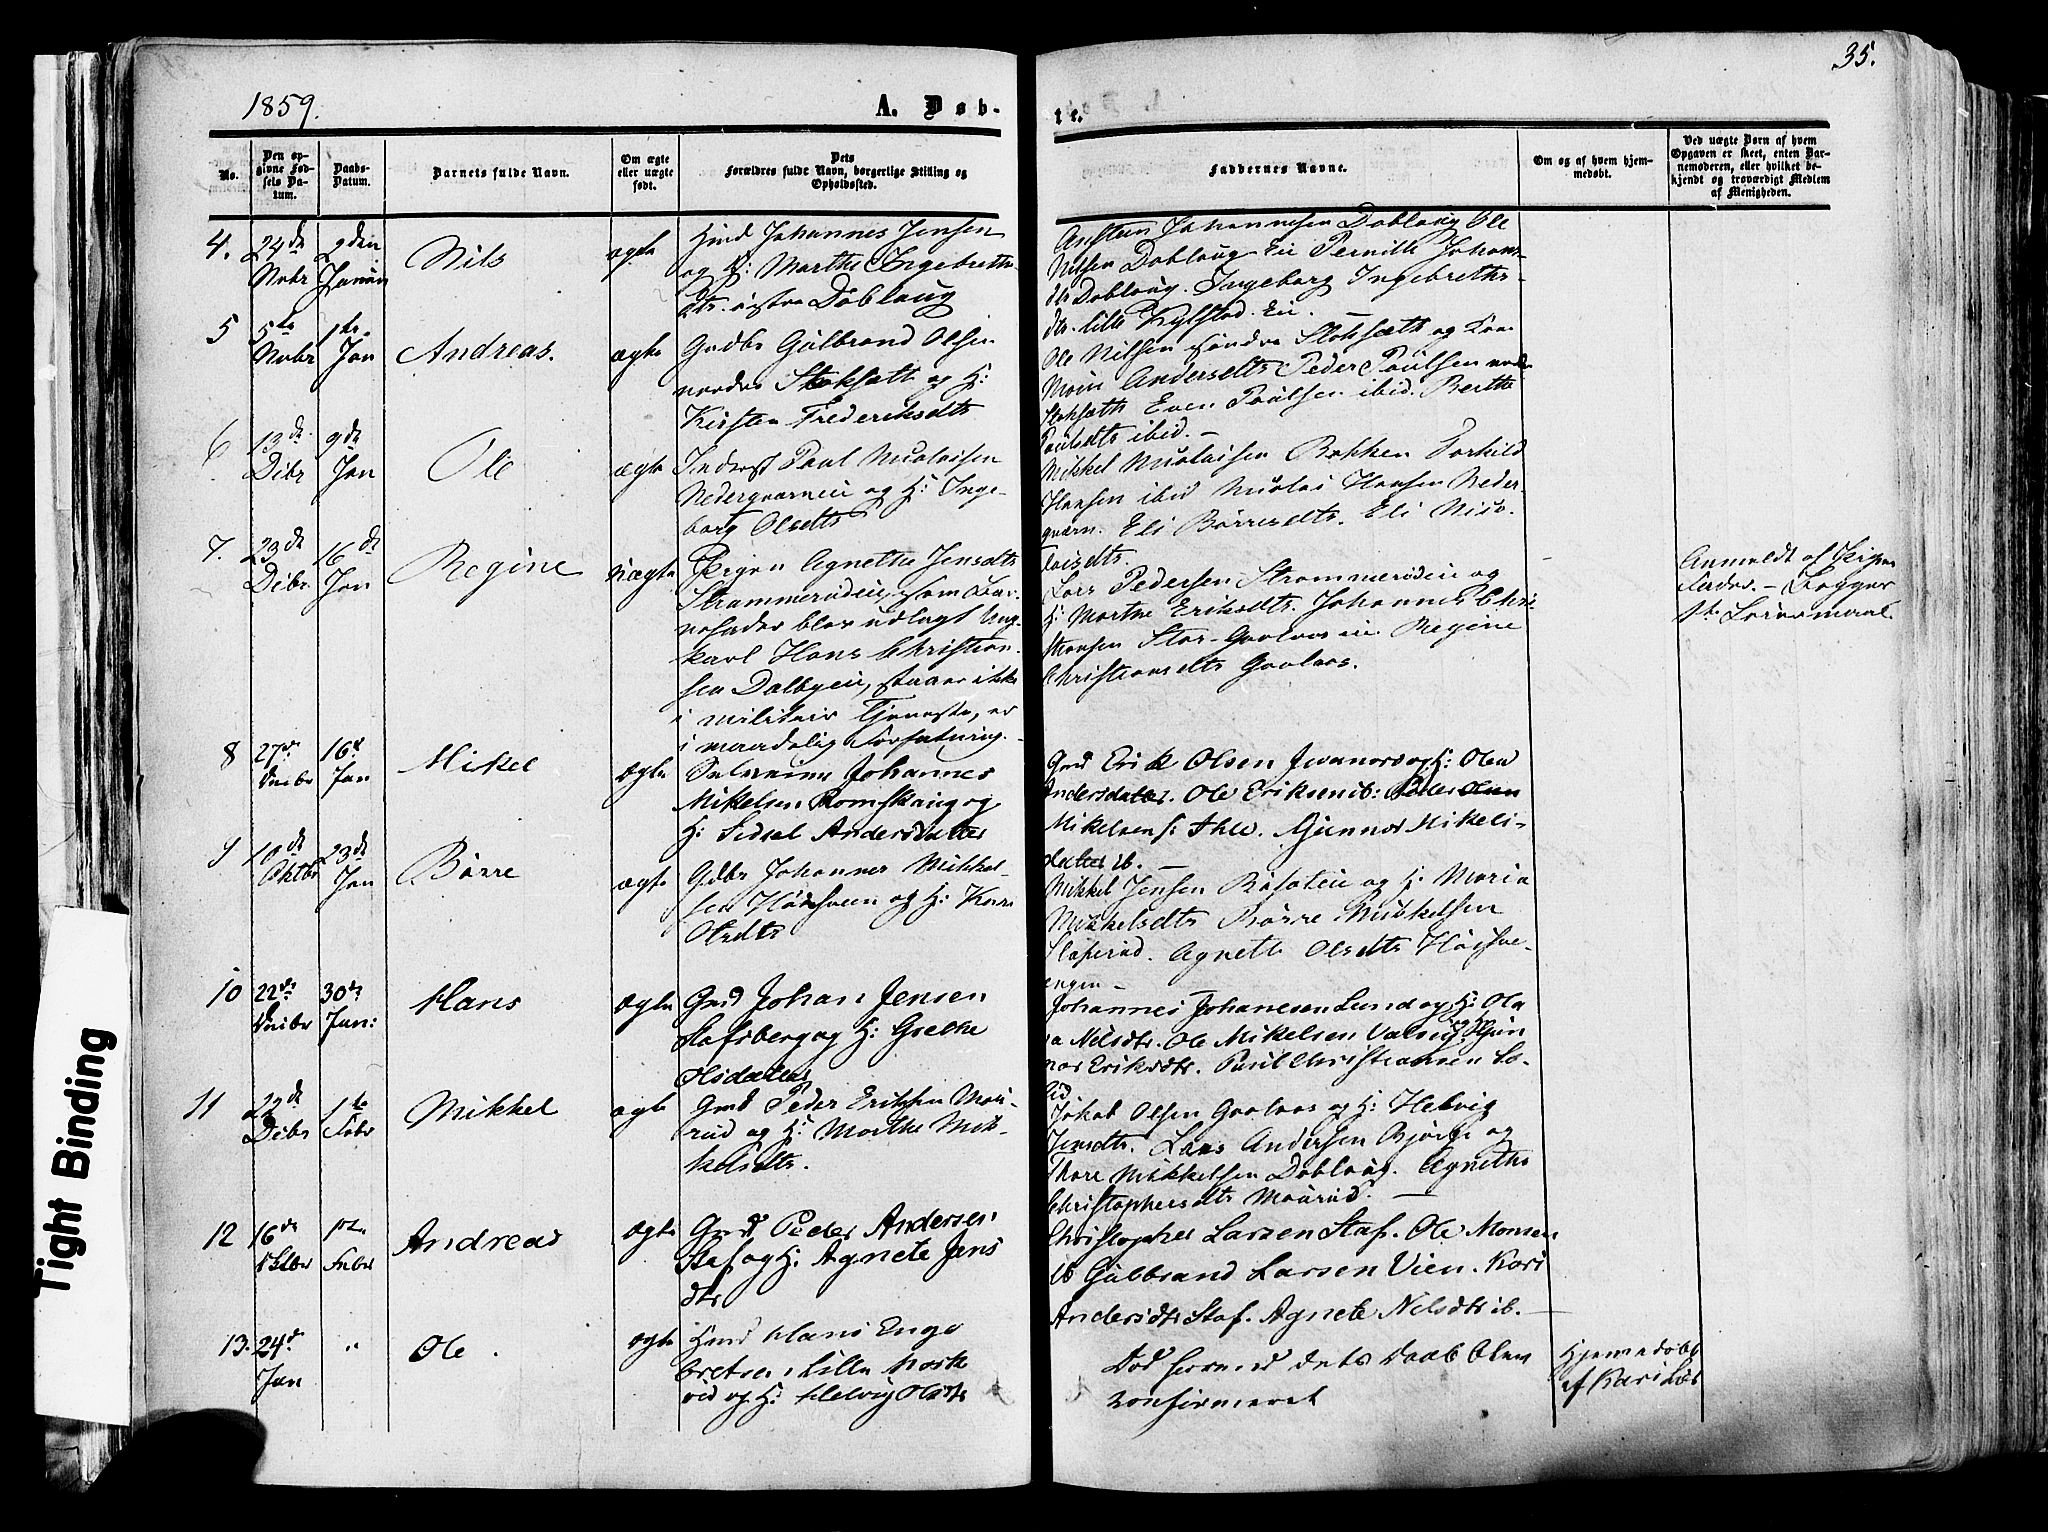 35.
1859.
A. Døb-
te.
No.
Den op-
givne Fød-
sels Da-
tum.
Daabs-
Datum.
Barnets fulde Navn.
Om ægte
eller uægte
født.
Dets
Forældres fulde Navn, borgerlige Stilling og
Opholdssted.
Faddernes Navne.
Om og af hvem hjem-
medøbt.
Ved uægte Børn af hvem
Opgaven er skeet, enten Bar-
nemoderen, eller hvilket be-
kjendt og troværdigt Medlem
af Menigheden.
4.
24de
Novbr
2den
Januar
Nils
ægte
Hmd Johannes Jensen
og H: Marthe Ingebreths-
dtr. østre Doblaug
Johannesen Doblaug Ole
Nilsen Doblaug Ei Pernille Johans-
dtr Doblaug. Ingeborg Ingebreths-
dtr. lille Kylstad Ei. —
5
5te
Novbr
1te
Jan
Andreas.
ægte
Gdbr Gulbrand Olsen
nordre Stoksæth og H:
Kirsten Frederiksdtr
Ole Nilsen søndre Stoksæth og
Andersdtr Peder Paulsen
Stoksæth Even Paulsen ibid. Berthe
Paulsdtr ibid. —
6
13de
Dcbr
9de
Jan
Ole
ægte
Inderst Paul Nicolaisen
Nederqværneie og H: Inge-
borg Olsdtr
Mikkel Nicolaisen Bakken Torkild
Hansen ibid Nicolai Hansen Neder-
qværn. Eli Børresdtr. Eli Nico-
laisdtr.
7.
23de
Dcbr
16de
Jan
Regine
uægte
Pigen Agnethe Jensdtr
Strømmerudeie, som Bar-
nefader blev udlagt Ung-
karl Hans Christian-
sen Dalbyeie, staaer ikke
i militair Tjeneste, er
i maadelig Forfatning.
Lars Pedersen Strømmerudeie og
H: Marthe Eriksdtr. Johannes Chri
stiansen Stor-Gaalaas eie Regine
Christiansdtr Gaalaas.
Anmeldt af
8
27de
16de
Jan
Mikel
ægte
Johannes
Mikelsen Romskaug og
H: Sidsel Andersdatter
Gmd Erik Olsen Jevanord og H: Olea
Andersdatter. Ole Eriksen ib: Peder Olsen
Mikelsen s: Ihle. Gunnor Mikels-
datter ib. —
9
10de
Oktbr
23de
Jan
Børre
ægte
Gdbr Johannes Mikkel-
sen Høisveen og H: Kari
Olsdtr
Mikkel Jensen og H. Maria
Mikkelsdtr Børre Mikkelsen
Slaperud. Agnethe Olsdtr Høisve-
engen —
10
22de
30te
Jan:
Hans
ægte
Gmd Johan Jensen
Stafsberg og H: Grethe
Olsdatter
Johannes Johanesen Lund og H: Ole
a Nelsdtr. Ole Mikelsen og Gun
nor Eriksdtr. Paul Christiansen
11
22de
Dcbr
1te
Febr
Mikkel
ægte
Gmd Peder Eriksen Mau-
rud og H: Marthe Mik-
kelsdtr.
Jakob Olsen Gaalaas og H: Helvig
Jensdtr. Lars Andersen Bjørge og
Thore Mikkelsen Doblaug. Agnethe
Christophersdtr Maurud. —
12
16de
Oktbr
1te
Febr
Andreas
ægte
Gmd Peder Andersen
Staf og H: Agnete Jens
dtr
Christopher Larsen Staf. Ole Monsen
ib Gulbrand Larsen Vien. Kari
Andersdtr Staf. Agnete Nelsdtr ib. —
13.
24de
Jan
"
Ole.
ægte
Hmd Hans Enge
bretsen Lille
rud og H: Helvig Olsdtr
Død forend dets Daab blev
konfirmeret
Hjemmedøbt
af Kari
Tight Binding